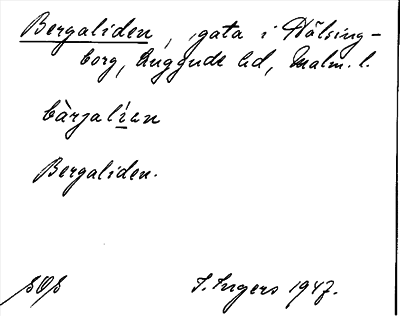 Bergaliden, gata i Hälsing-
borg, Luggude hd, Malm. l.
bàrjalíɛn
Bergaliden.
SOS I. Ingers 1947.